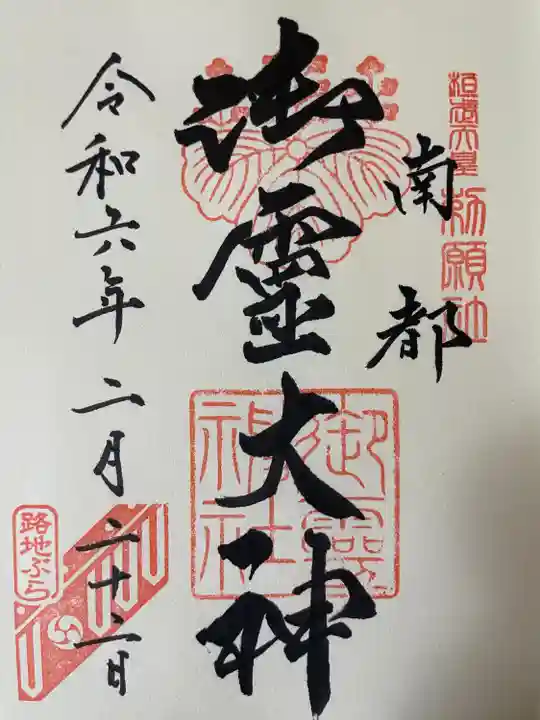 桓武天皇
勅願社
南都
御霊大神
御霊神社
令和六年二月二十二日
路地ぶら